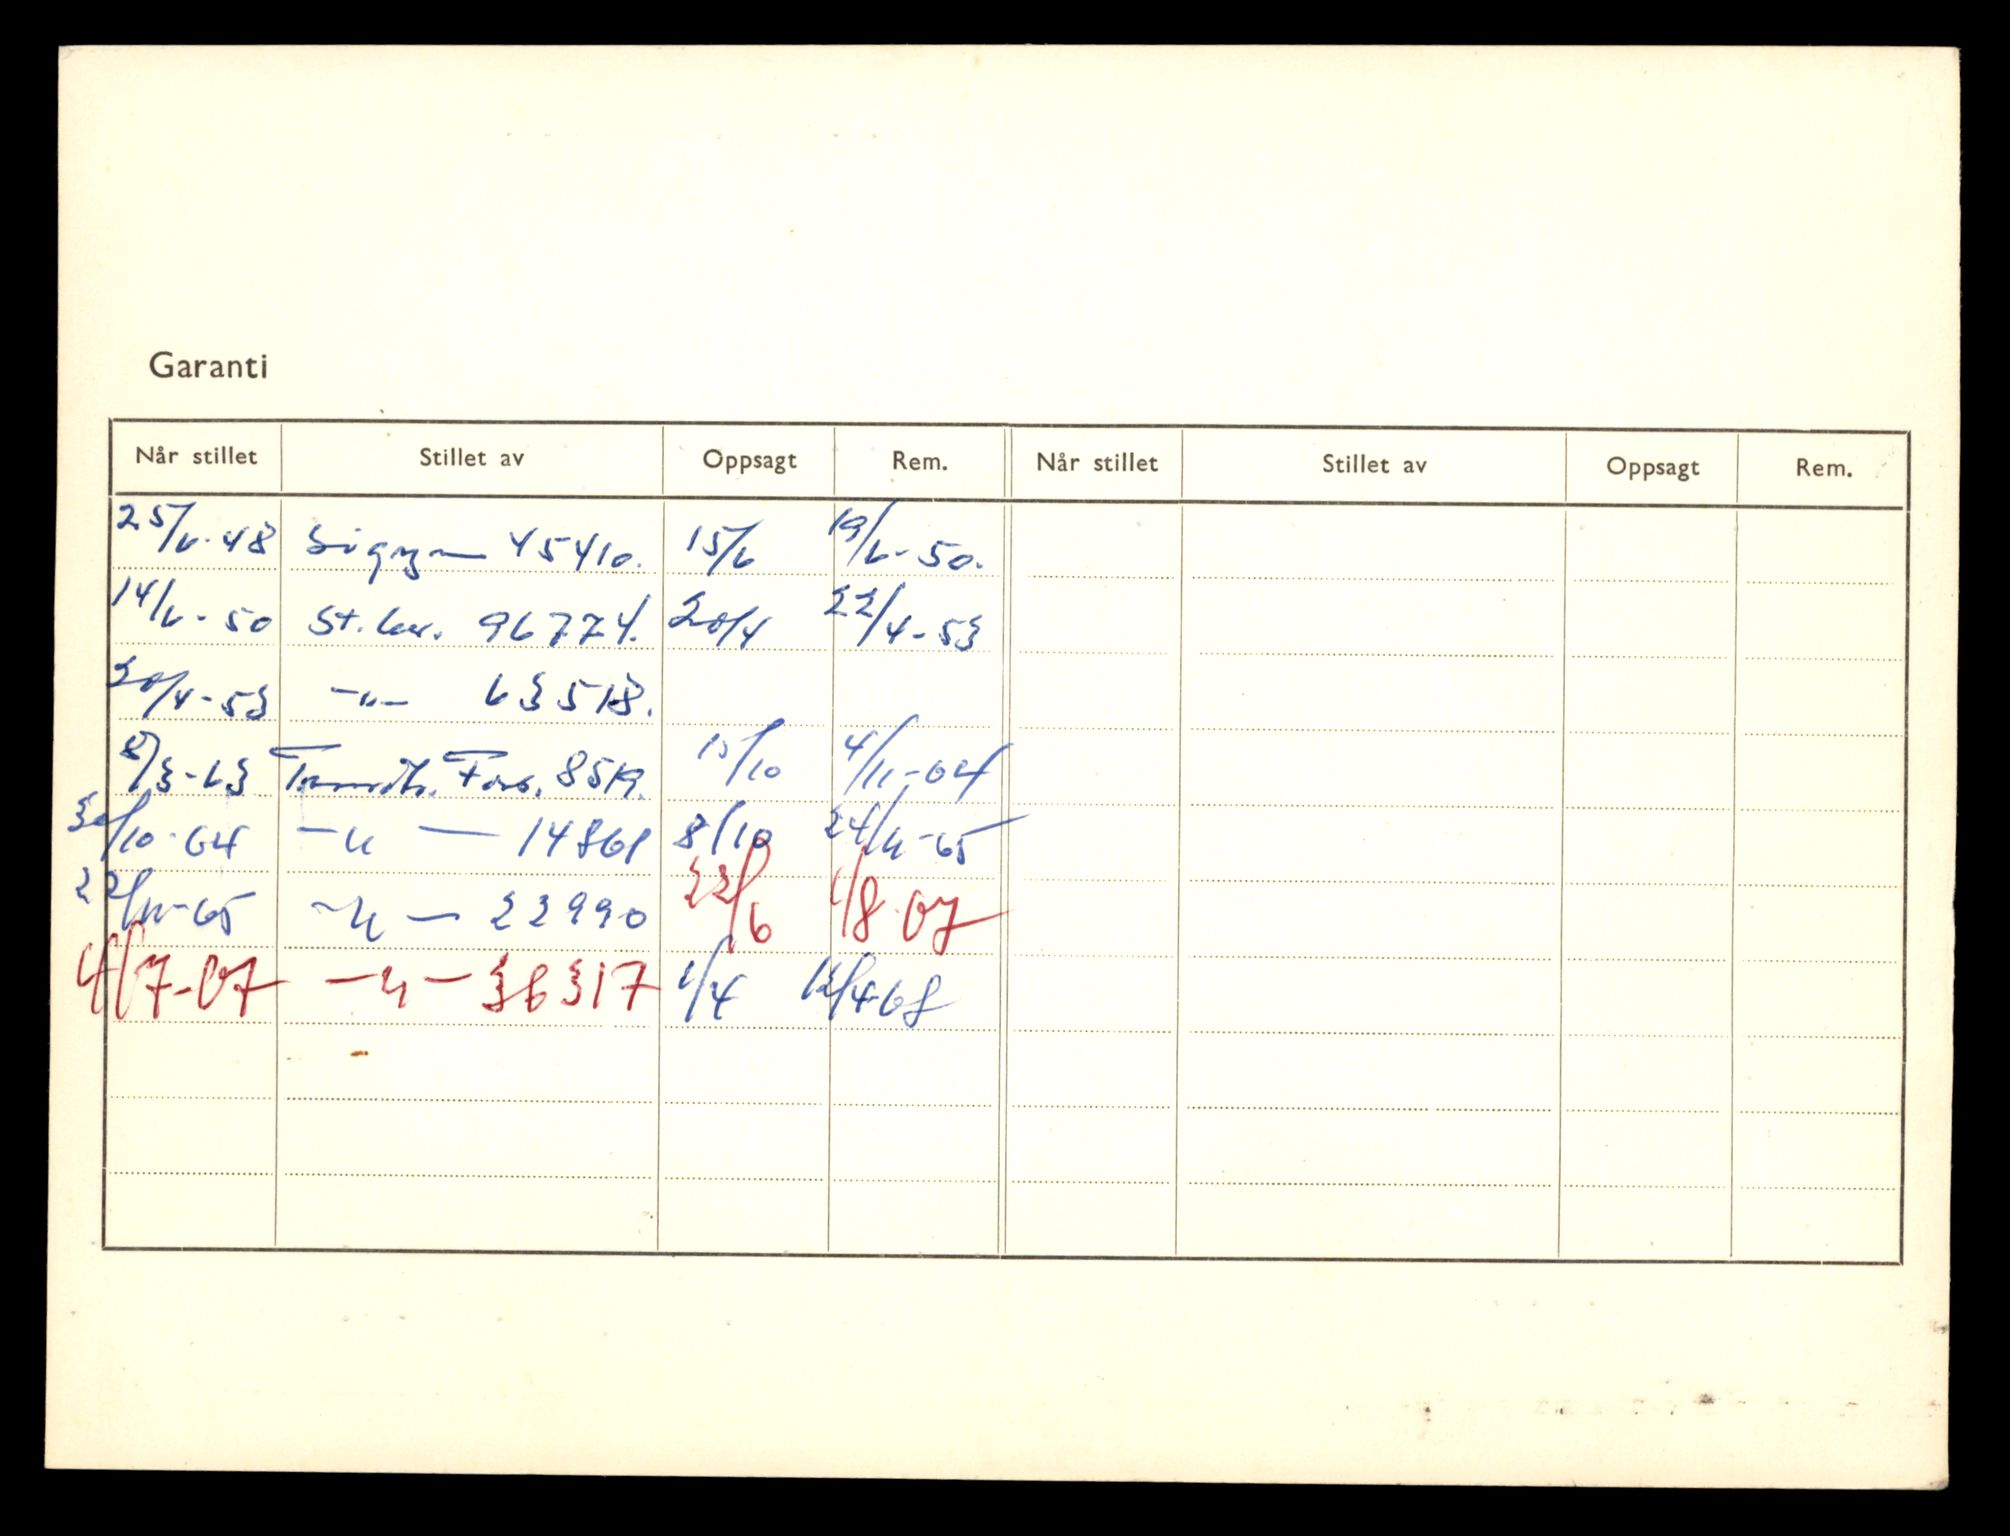 Garanti
Når stillet Stillet av Oppsagt Rem. Når stillet Stillet av Oppsagt Rem.
25/6-48 Sigyn 45410. 15/6 19/6-50.
14/6-50 St. 96774. 20/4 22/4-53
20/4-53 -"- 63518.
8/3-63 Trondh. Fors. 8519. 15/10 4/11-64
30/10-64 -"- 14861 8/10 24/11-65
22/11-65 -"- 22990 23/6 1/8-67
4/7-67 -"- 36317 1/4 12/4-68